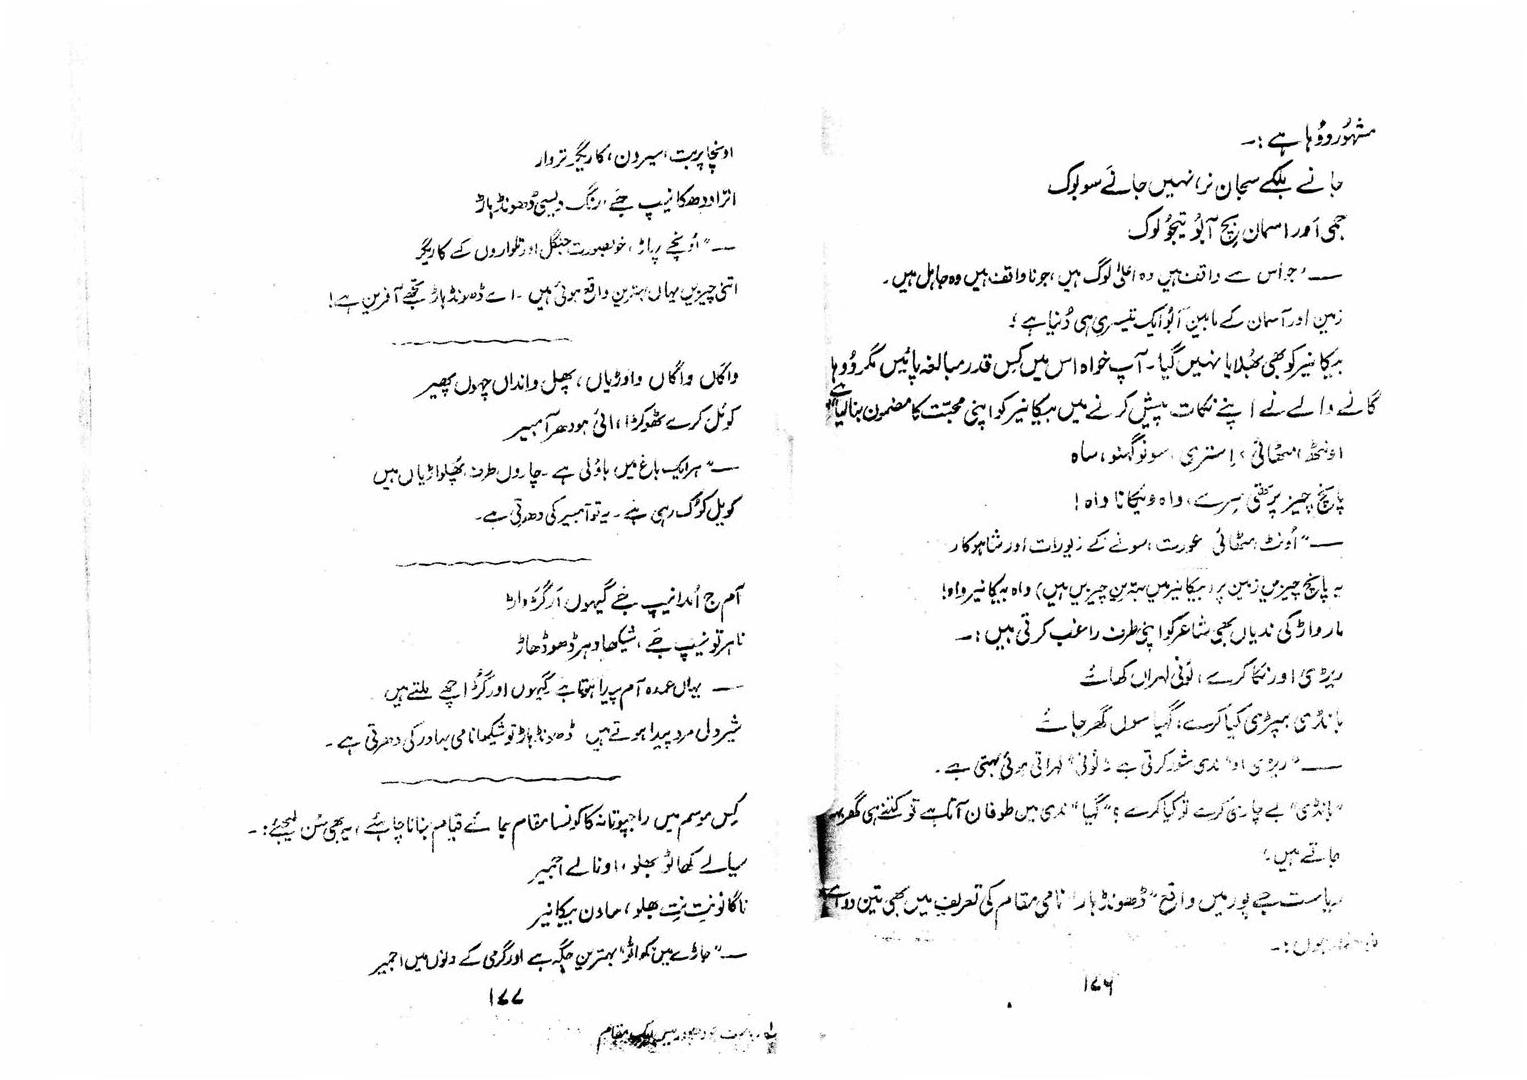 مشہور دوہا ہے :۔
جانے ہلکے سجان نر، نہیں جانے سو بوک
جمی اَور اسمان بیچ آبُو تیجُو لوک
— ”جو اُس سے واقف ہیں وہ اعلیٰ لوگ ہیں، جو ناواقف ہیں وہ جاہل ہیں۔
زمین اور آسمان کے مابین آبو ایک تیسری ہی دُنیا ہے؛
بیکانیر کو بھی بھُلایا نہیں گیا۔ آپ خواہ اس میں کِس قدر مبالغہ پائیں مگر دوہا
گانے والے نے اپنے نکات پیش کرنے میں بیکانیر کو اپنی محبّت کا مضمون بنا لیا ہے
اونٹھ، مٹھائی، اِستری، سونو گہنو، ساہ
پانچ چیز پرتھی سِرے، واہ وِیکانا واہ!
— ”اُونٹ، مٹھائی عورت، سونے کے زیورات اور شاہوکار
یہ پانچ چیزیں زمین پر (بیکانیر میں بہترین چیزیں ہیں) واہ بیکانیر واہ!
مارواڑ کی ندیاں بھی شاعر کو اپنی طرف راغب کرتی ہیں :۔
ریڑی اور نکا کرے، لُونی لہراں کھائے
بانڈی بپڑی کیا کرے، گہیا سوں گھر جائے
— ”ریڑی او“ ندی شور کرتی ہے ”لُونی“ لہراتی ہوئی بہتی ہے۔
”بانڈی“ بے چاری کرے تو کیا کرے؟ ”گہیا“ ندی میں طوفان آتا ہے تو کتنے ہی گھر بہہ
جاتے ہیں؛
ریاست جے پور میں واقع ”ڈھونڈہار“ نامی مقام کی تعریف میں بھی تین دوہے
ہوں :۔
۱۷۶
اونچا پربت، سیر ون، کاریگر تروار
اترا ددھکا نیپ جَے، رنگ دیسی ڈھونڈہاڑ
— ”اُونچے پہاڑ، خوبصورت جنگل اور تلواروں کے کاریگر
اتنی چیزیں یہاں بہترین واقع ہوئی ہیں۔ اے ڈھونڈہاڑ تجھے آفرین ہے!
واگاں واگاں واوڑیاں، پھل واداں چہوں پھیر
کوئل کرے ٹھوکڑا، ائی ہو دھر آمبیر
— ”ہر ایک باغ میں باؤلی ہے۔ چاروں طرف پھُلواڑیاں ہیں
کویل کوُک رہی ہے۔ یہ تو آمبیر کی دھرتی ہے۔
آم ج اُمدا نیپ جَے گیہوں اَر گُڑ واڑ
ناہر تو نیپ جَے، شیکھا دہر ڈھوڈھاڑ
— یہاں عمدہ آم پیدا ہوتا ہے گیہوں اور گُڑ اچھے ملتے ہیں
شیر دل مرد پیدا ہوتے ہیں ڈھونڈہاڑ تو شیکھا نامی بہادر کی دھرتی ہے۔
کِس موسم میں راجپوتانہ کا کونسا مقام جائے قیام بنانا چاہئے، یہ بھی سُن لیجئے :۔
سیالے کھاٹو بھلو، اونالے اجمیر
ناگانو نِت نِت بھلو، سادن بیکانیر
— ”جاڑے میں کھاٹو بہترین جگہ ہے اور گرمی کے دنوں میں اجمیر
۱۷۷
میں ایک مقام